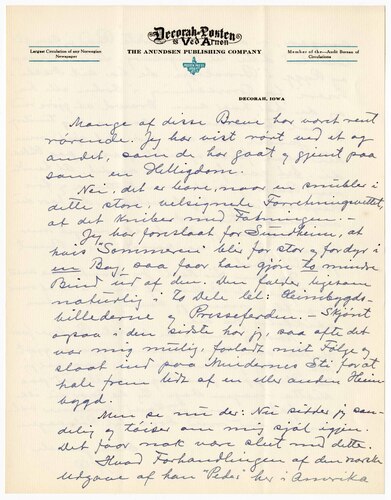 Decorah-Posten
& Ved Arnen
Largest Circulation of any Norwegian
Newspaper
THE ANUNDSEN PUBLISHING COMPANY
Member of the—Audit Bureau of
Circulations
DECORAH, IOWA
Mange af disse Breve har vært rent
rørende. Jeg har vist rørt ved et og
andet, som de har gaat og gjemt paa
som en Helligdom.
Nei, det er bare, naar en smuler i
dette store, velsignede
at det kniber med Fatningen. —
Jeg har foreslaat for Sundheim, at
hvis "Sommeren" blir for stor og for dyr i
en Bog, saa faar han gjøre to mindre
Bind ud af den. Den falder ligesom
naturlig i to Dele let: Heimbygds-
billederne og Prisseferden. — Skjønt
ogsaa i den sidste har jeg, saa ofte det
var mig mulig, forladt mit Følge og
slaat ind paa Mindernes Sti for at
hale frem lidt af en eller anden Heim-
bygd.
Men se nu der: Nu sidder jeg
og tøiser om mig sjøl igjen.
Det faar nok være slut med dette.
Hvad Forhandlingen af den norske
Udgave af han "Peder" her i Amerika